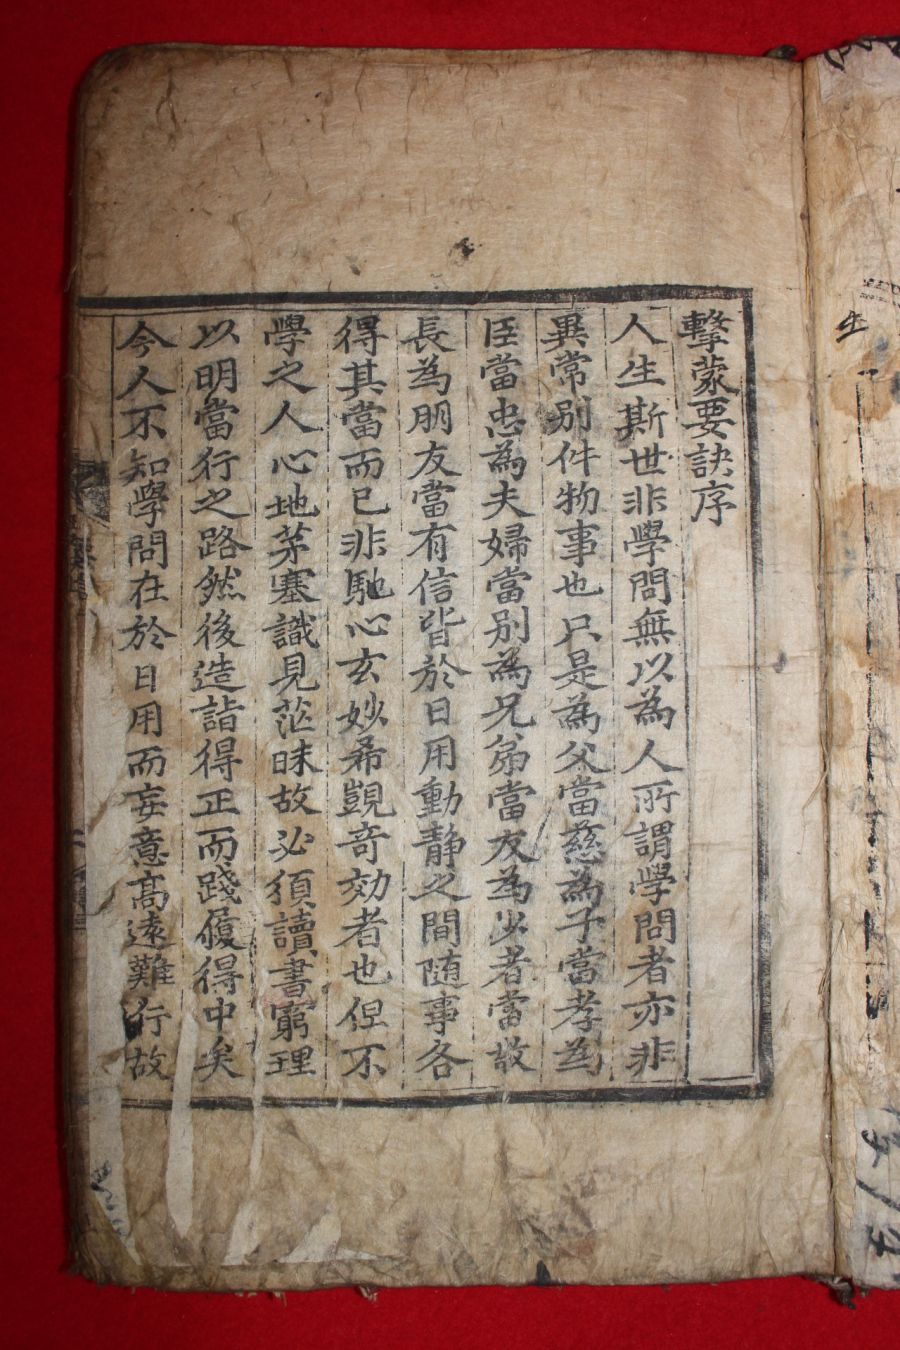 擊蒙要訣序
人生斯世非學問無以為人所謂學問者亦非
異常別件物事也只是為父當慈為子當孝為
臣當忠為夫婦當別為兄弟當友為少者當敬
長為朋友當有信皆於日用動靜之間隨事各
得其當而已非馳心玄妙希覬奇効者也但不
學之人心地茅塞識見茫昧故必須讀書窮理
以明當行之路然後造詣得正而踐履得中矣
今人不知學問在於日用而妄意高遠難行故